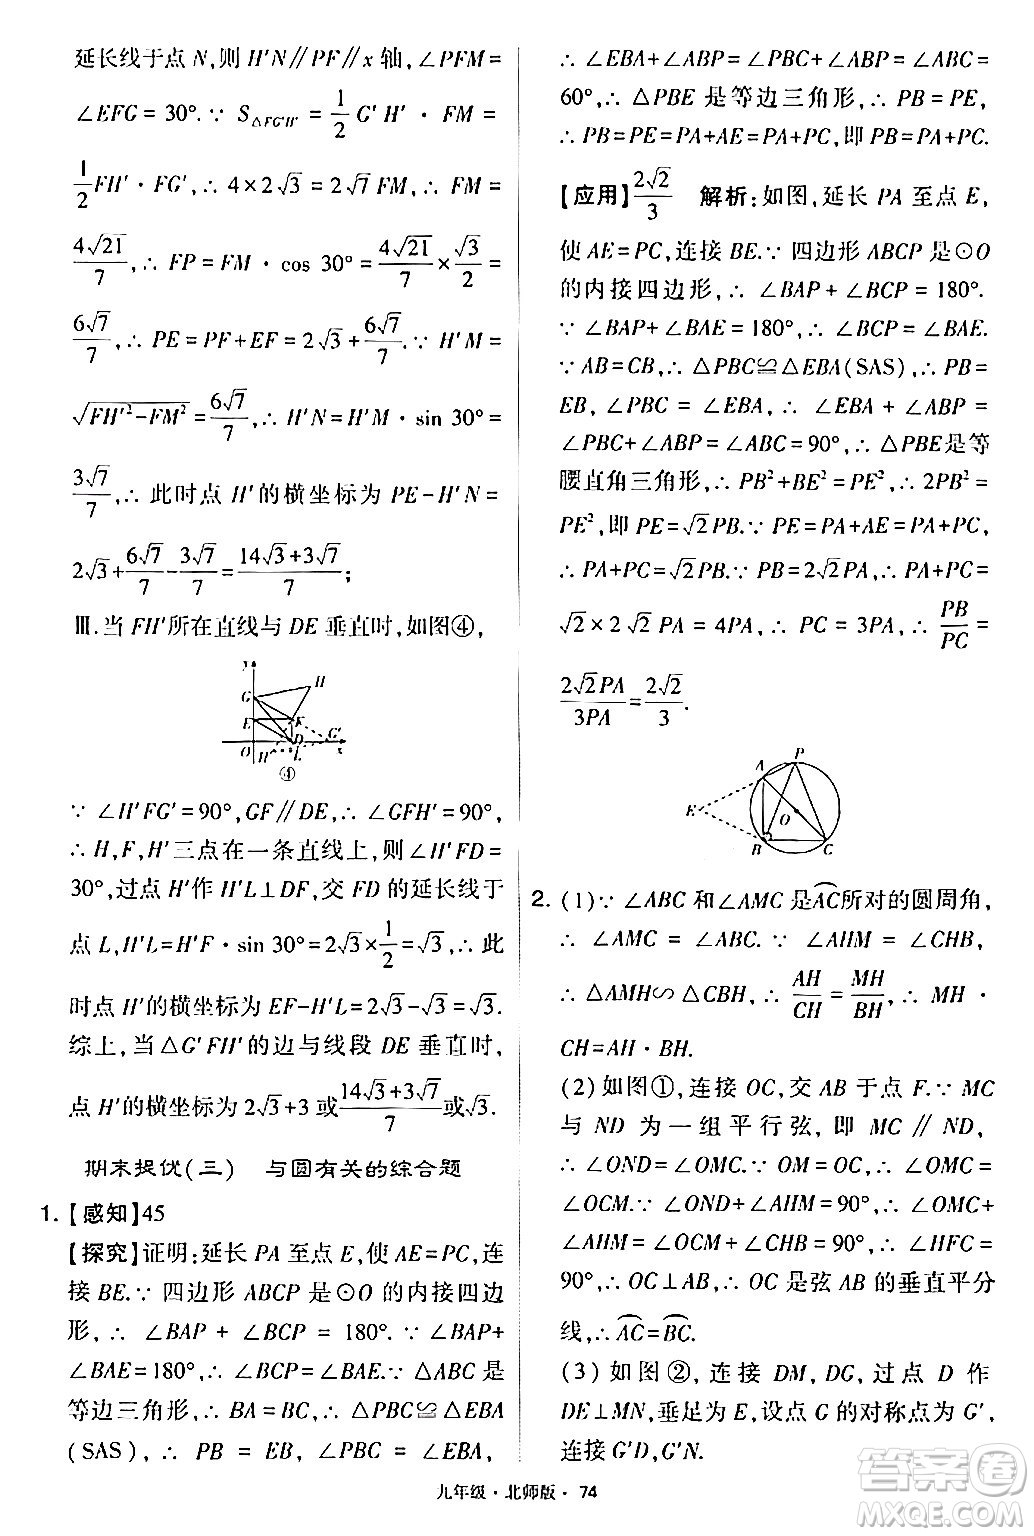 延长线于点 N,则 H′N∥PF∥x 轴,∠PFM=
∠EFG=30°.∵ S△FG′H′=1/2 G′H′·FM=
1/2 FH′·FG′,∴ 4×2√3=2√7 FM,∴ FM=
4√21/7,∴ FP=FM·cos 30°=4√21/7×√3/2=
6√7/7,∴ PE=PF+EF=2√3+6√7/7.∵ H′M=
√(FH′²-FM²)=6√7/7,∴ H′N=H′M·sin 30°=
3√7/7,∴ 此时点 H′的横坐标为 PE-H′N=
2√3+6√7/7-3√7/7=(14√3+3√7)/7;
Ⅲ.当 FH′所在直线与 DE 垂直时,如图④,
y
G
H
E
F
D
G′
O
H′
L
x
④
∵ ∠H′FG′=90°,GF∥DE,∴ ∠GFH′=90°,
∴ H,F,H′三点在一条直线上,则∠H′FD=
30°,过点 H′作 H′L⊥DF,交 FD 的延长线于
点 L,H′L=H′F·sin 30°=2√3×1/2=√3,∴ 此
时点 H′的横坐标为 EF-H′L=2√3-√3=√3.
综上,当△G′FH′的边与线段 DE 垂直时,
点 H′的横坐标为 2√3+3 或(14√3+3√7)/7或√3.
期末提优(三) 与圆有关的综合题
1.【感知】45
【探究】证明:延长 PA 至点 E,使 AE=PC,连
接 BE.∵ 四边形 ABCP 是⊙O 的内接四边
形,∴ ∠BAP + ∠BCP = 180°.∵ ∠BAP+
∠BAE=180°,∴ ∠BCP=∠BAE.∵ △ABC 是
等边三角形,∴ BA=BC,∴ △PBC≌△EBA
(SAS),∴ PB = EB,∠PBC = ∠EBA,
∴ ∠EBA+∠ABP=∠PBC+∠ABP=∠ABC=
60°,∴ △PBE 是等边三角形,∴ PB=PE,
∴ PB=PE=PA+AE=PA+PC,即 PB=PA+PC.
【应用】2√2/3 解析:如图,延长 PA 至点 E,
使 AE=PC,连接 BE.∵ 四边形 ABCP 是⊙O
的内接四边形,∴ ∠BAP+∠BCP=180°.
∵ ∠BAP+∠BAE=180°,∴ ∠BCP=∠BAE.
∵ AB=CB,∴ △PBC≌△EBA(SAS),∴ PB=
EB,∠PBC=∠EBA,∴ ∠EBA+∠ABP=
∠PBC+∠ABP=∠ABC=90°,∴ △PBE是等
腰直角三角形,∴ PB²+BE²=PE²,∴ 2PB²=
PE²,即 PE=√2PB.∵ PE=PA+AE=PA+PC,
∴ PA+PC=√2PB.∵ PB=2√2PA,∴ PA+PC=
√2×2√2PA=4PA,∴ PC=3PA,∴ PB/PC=
2√2PA/3PA=2√2/3.
P
A
E
O
B
C
2. (1)∵ ∠ABC 和∠AMC 是AC⌒所对的圆周角,
∴ ∠AMC=∠ABC.∵ ∠AHM=∠CHB,
∴ △AMH∽△CBH,∴ AH/CH=MH/BH,∴ MH·
CH=AH·BH.
(2)如图①,连接 OC,交 AB 于点 F.∵ MC
与 ND 为一组平行弦,即 MC∥ND,
∴ ∠OND=∠OMC.∵ OM=OC,∴ ∠OMC=
∠OCM.∵ ∠OND+∠AHM=90°,∴ ∠OMC+
∠AHM=∠OCM+∠CHB=90°,∴ ∠HFC=
90°,∴ OC⊥AB,∴ OC 是弦 AB 的垂直平分
线,∴ AC⌒=BC⌒.
(3)如图②,连接 DM,DG,过点 D 作
DE⊥MN,垂足为 E,设点 G 的对称点为 G′,
连接 G′D,G′N.
九年级·北师版·74
答案圈
MXQE.COM